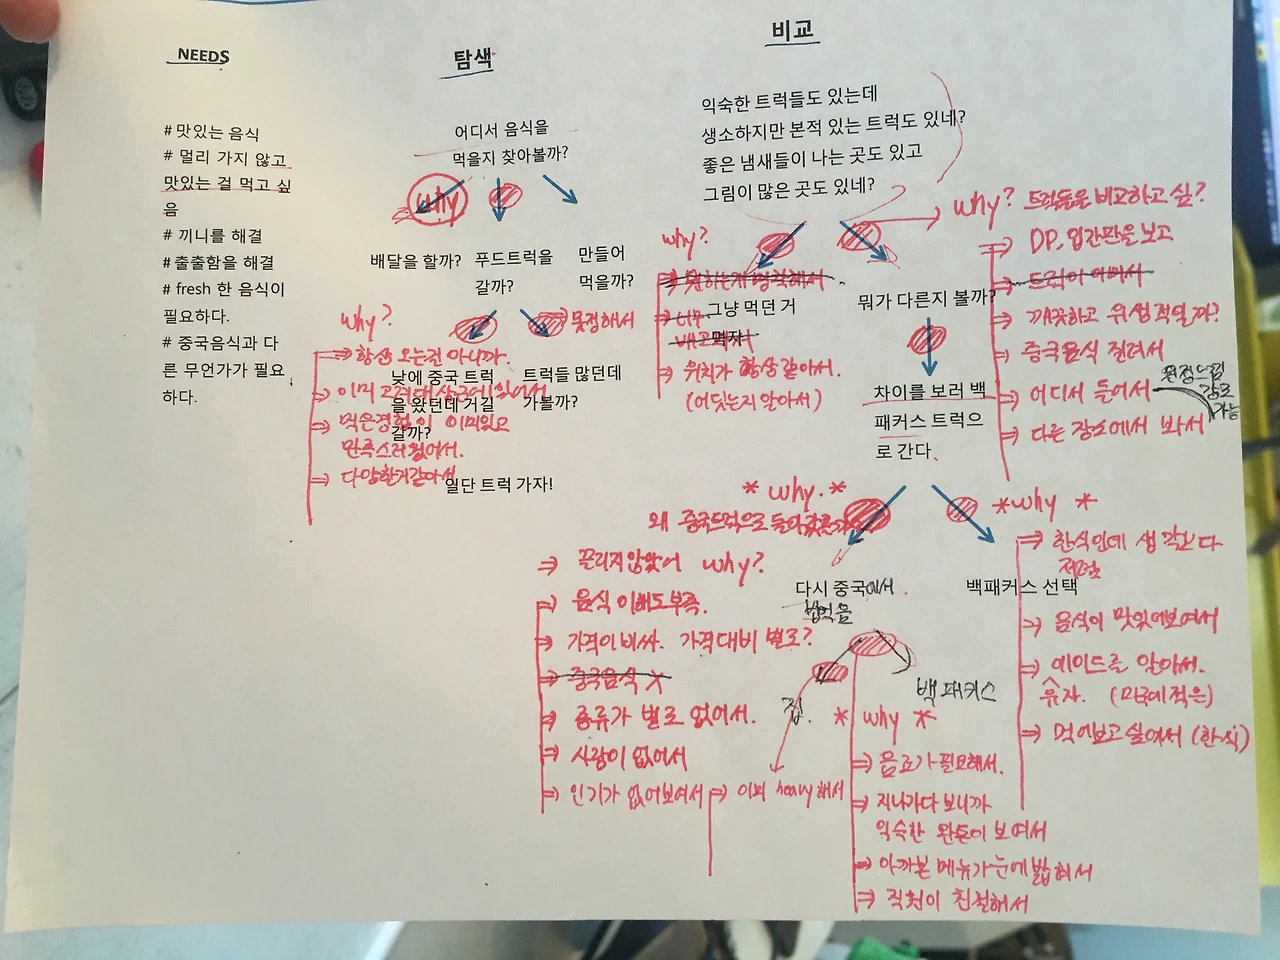 NEEDS
# 맛있는 음식
# 멀리 가지 않고
맛있는 걸 먹고 싶
음
# 끼니를 해결
# 출출함을 해결
# fresh 한 음식이
필요하다.
# 중국음식과 다
른 무언가가 필요
하다.
탐색
어디서 음식을
먹을지 찾아볼까?
why
배달을 할까?
푸드트럭을
갈까?
만들어
먹을까?
why?
⇒ 항상 오는건 아니까.
⇒ 먹은경험이 이미있고
만족스러웠어서.
⇒ 다양한거같아서
낮에 중국 트럭
을 왔던데 거길
갈까?
트럭들 많던데
가볼까?
일단 트럭 가자!
비교
익숙한 트럭들도 있는데
생소하지만 본적 있는 트럭도 있네?
좋은 냄새들이 나는 곳도 있고
그림이 많은 곳도 있네?
why?
그냥 먹던 거
먹자
⇒ 위치가 항상 같아서.
(어딧는지 알아서)
뭐가 다른지 볼까?
why? 트럭들을 비교하고 싶?
⇒ DP, 입간판을 보고
⇒ 깨끗하고 위생적일까?
⇒ 중국음식 질려서
⇒ 어디서 들어서
⇒ 다른 장소에서 봐서
차이를 보러 백
패커스 트럭으
로 간다.
* why. *
왜 중국트럭으로 돌아갔는가?
⇒ 끌리지않았어 why?
⇒ 음식 이해도부족.
⇒ 가격이비싸. 가격대비 별로?
⇒ 중국음식 X
⇒ 종류가 별로 없어서.
⇒ 사람이 없어서
⇒ 인기가 없어보여서
다시 중국에서
밥먹음
집.
백패커스
⇒ 이미 heavy해서
* why *
⇒ 음료가필요해서.
⇒ 지나가다 보니까
익숙한 완톤이 보여서
⇒ 아까본 메뉴가눈에밟혀서
⇒ 직원이 친절해서
* why *
백패커스 선택
⇒ 한식인데 생각보다
⇒ 음식이 맛있어보여서
⇒ 에이드를 알아서.
유자. (미국에 적은)
⇒ 먹어보고싶어서 (한식)